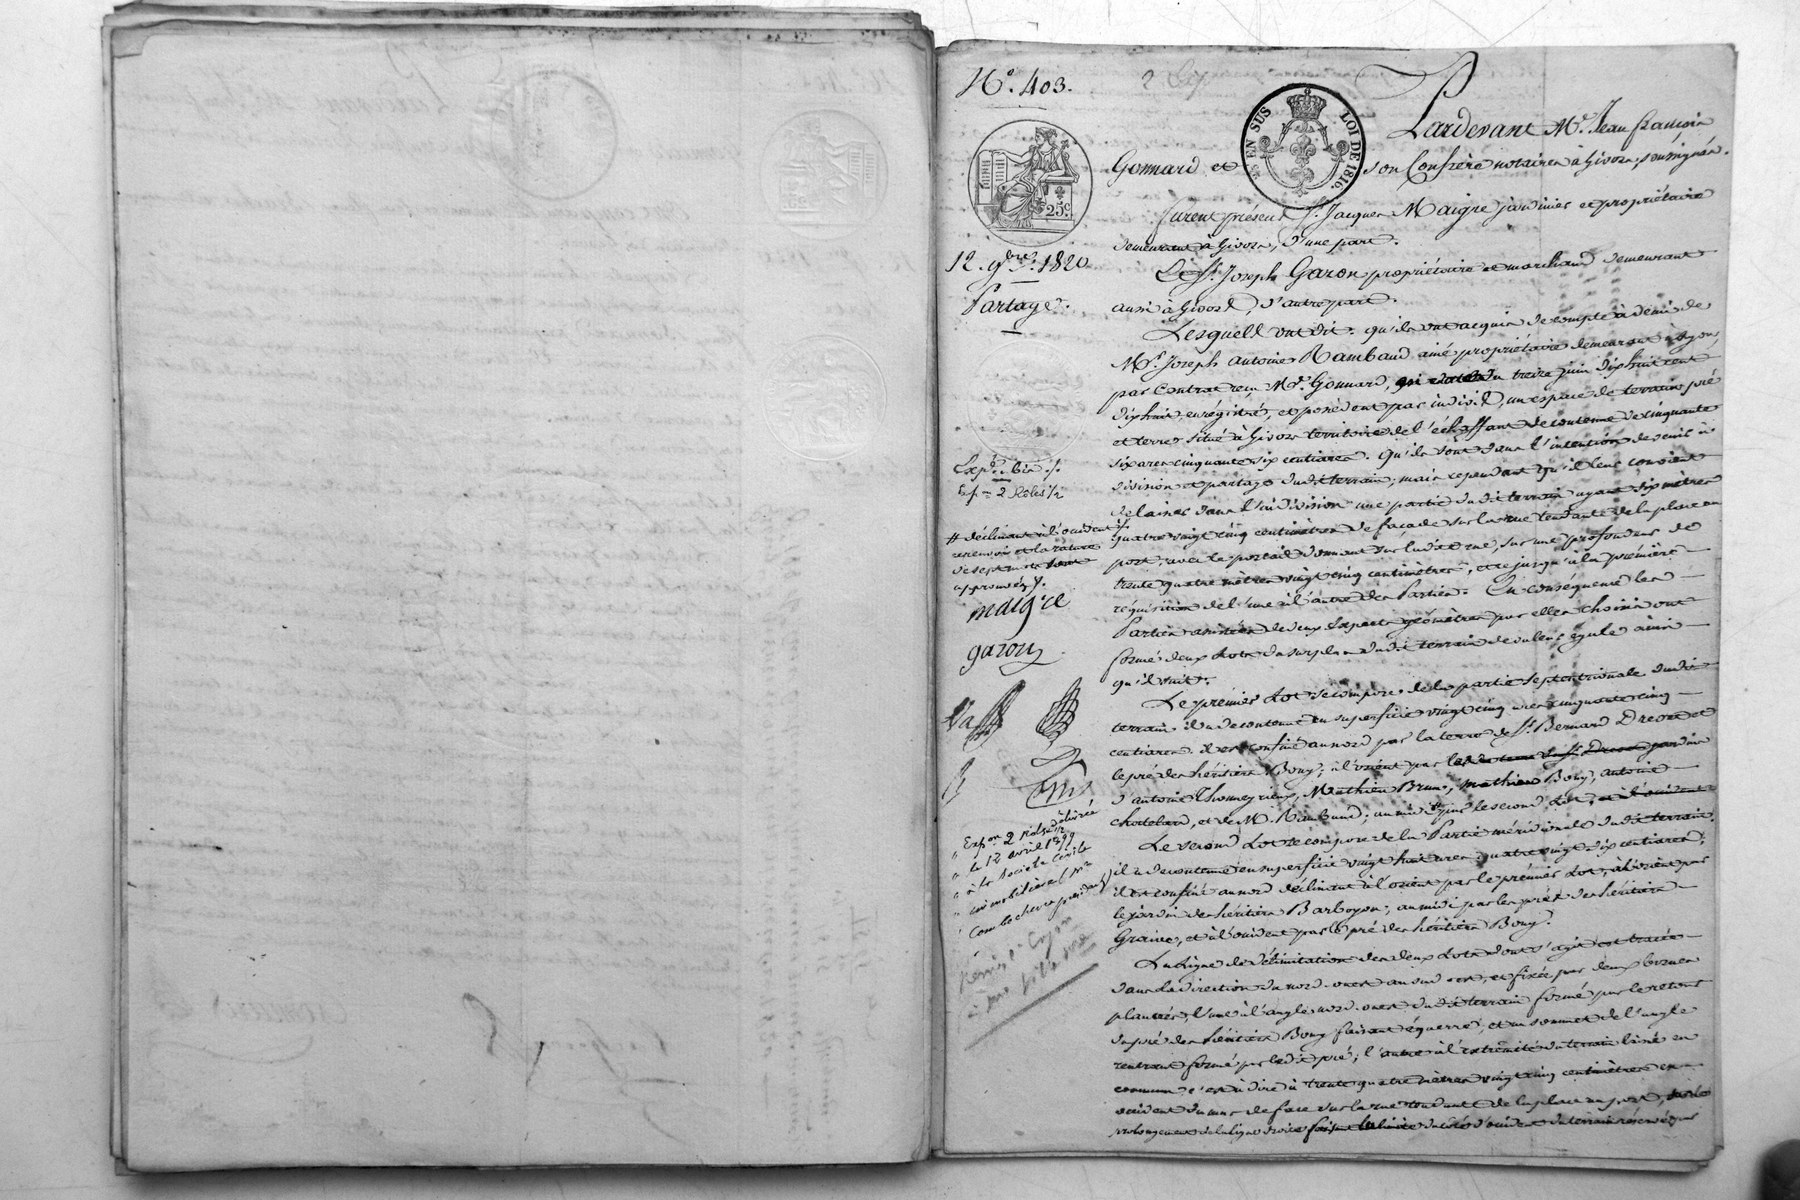 N.° 403.
EN SUS
LOI DE 1816.
25c.
12. 9bre. 1820
Partage.
Exp.on bis
Exp = 2 Roles 1/2
# déclinant à l'occident
renvoi et la rature
de sept mots sont
approuvés.
maigre
garon
Exp.on 2 Roles 1/2 délivrée
le 12 avril 1899
à la Société Civile
immobilière
Pardevant M.e Jean françois
Gonnard et son Confrère notaires à Givors, soussignés.
furent présens S.r Jacques Maigre jardinier et propriétaire
demeurant à Givors, d'une part.
Et S.r Joseph Garon propriétaire et marchand demeurant
aussi à Givors, d'autre part.
Lesquels ont dit: qu'ils ont acquis de compte à demi de
M.r Joseph antoine Rambaud ainé propriétaire demeurant à Lyon,
par Contrat reçu M.e Gonnard, du treize juin dixhuit cent
dixhuit, enrégistré, et possèdent par indivis, un espace de terrain pré
et terre, situé à Givors territoire de l'échassant de contenue de cinquante
six ares cinquante six centiares. Qu'ils sont dans l'intention de venir à
division et partage dudit terrain; mais cependant qu'il leur convient
de laisser dans l'indivision une partie dudit terrain ayant dix mètres
quatre vingt cinq centimètres de façade sur la rue tendante de la place au
port, avec le portail donnant sur ladite rue, sur une profondeur de
trente quatre mètres vingt cinq centimètres, et ce jusqu'à la première
réquisition de l'une à l'autre des Parties. En conséquence les
Parties assistées de deux Experts géomètres par elles choisis ont
formé deux Lots du surplus dudit terrain de valeur égale ainsi
qu'il suit:
Le premier Lot se compose de la partie septentrionale dudit
terrain il a de contenue en superficie vingt cinq ares cinquante cinq
centiares. il est confiné au nord par la terre de S.r Bernard Drevet et
le pré des héritiers Bouy; à l'orient par les
d'antoine Thomeyrieux, Mathieu Brun, mathieu Bouy, antoine
Chatelard, et de M. Rambaud; au midi par le second Lot, et à l'occident
Le second Lot se compose de la Partie méridionale dudit terrain.
il a de contenue en superficie vingt huit ares quatre vingt dix centiares;
il est confiné au nord déclinant à l'orient par le premier Lot, à l'orient par
le jardin des héritiers Barboyon; au midi par les prés des héritiers
Graive, et à l'occident par le pré des héritiers Bouy.
La Ligne de délimitation des deux Lots dont s'agit est tracée
dans la direction du nord-ouest au sud-est, et fixée par deux bornes
plantées, l'une à l'angle nord-ouest dudit terrain formé par le retour
du pré des héritiers Bouy faisant équerre, et au sommet de l'angle
rentrant formé par ledit pré; l'autre à l'extrêmité du terrain laissé en
commun c'est à dire à trente quatre mètres vingt cinq centimètres en
occident du mur de face sur la rue tendante de la place au port, sur le
prolongement de la ligne droite faisant la limite du côté d'occident du terrain réservé par